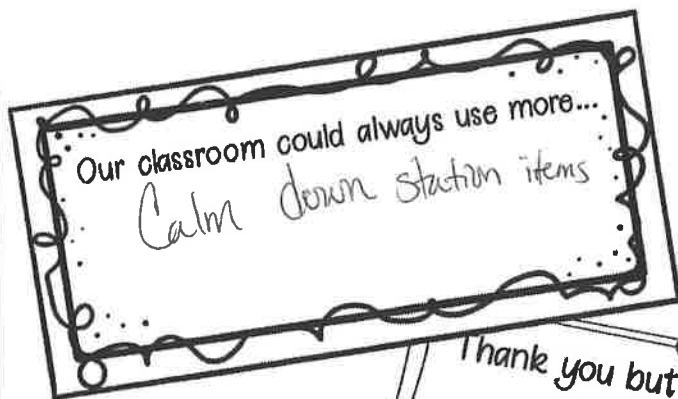 Our classroom could always use more...
Calm down station items
Thank you but